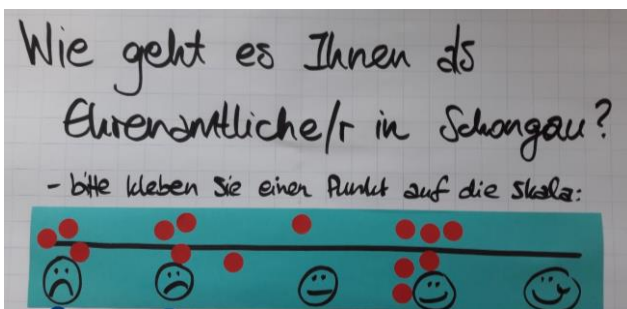 Wie geht es Ihnen als
Ehrenamtliche/r in Schongau?
- bitte kleben Sie einen Punkt auf die Skala: